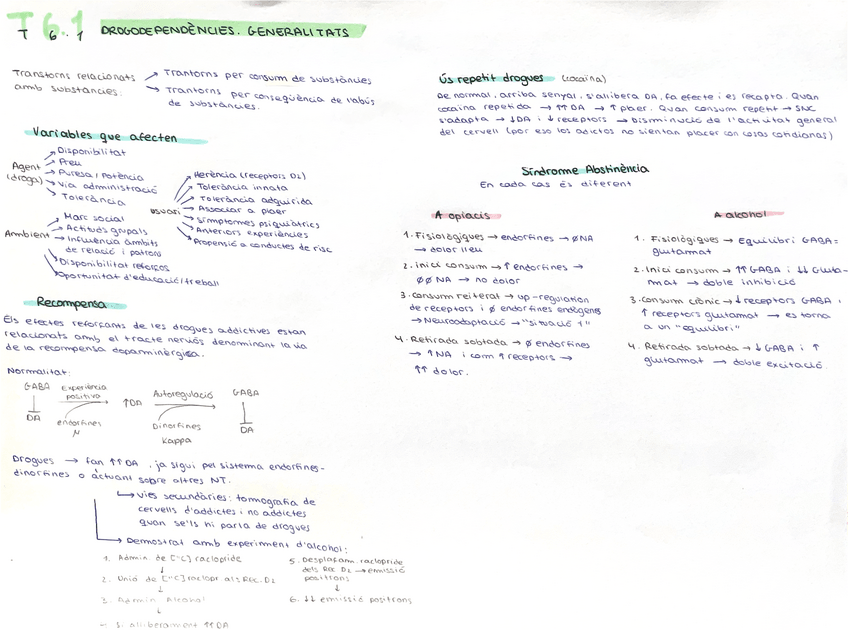 T 6.1
T 6.1 DROGODEPENDÈNCIES. GENERALITATS
Transtorns relacionats
amb substàncies.
→ Trantorns per consum de substàncies
→ Trantorns per conseqüència de l'abús
de substàncies.
Variables que afecten
Agent
(droga)
→ Disponibilitat
→ Preu
→ Puresa / potència
→ Via administració
→ Tolerància
Ambient
→ Marc social
→ Actituds grupals
→ Influència àmbits
de relació i patrons
→ Disponibilitat reforços
→ Oportunitat d'educació/treball
usuari
→ Herència (receptors D2)
→ Tolerància innata
→ Tolerància adquirida
→ Associar a plaer
→ Símptomes psiquiàtrics
→ Anteriors experiències
→ Propensió a conductes de risc
Recompensa
Els efectes reforçants de les drogues addictives estan
relacionats amb el tracte nerviós denominant la via
de la recompensa dopaminèrgica.
Normalitat:
GABA
DA
Experiència
positiva
endorfines
μ
↑DA
Autoregulació
Dinorfines
Kappa
GABA
DA
Drogues → fan ↑↑DA, ja sigui pel sistema endorfines-
dinorfines o actuant sobre altres NT.
→ vies secundàries: tomografia de
cervells d'addictes i no addictes
quan se'ls hi parla de drogues
→ Demostrat amb experiment d'alcohol:
1. Admin. de [¹¹C] raclopride
↓
2. Unió de [¹¹C] raclopr als Rec. D2
↓
3. Admin Alcohol
↓
S. alliberament ↑↑DA
5. Desplaçam. raclopride
dels Rec D2 → emissió
positrons
↓
6. ↓↓ emissió positrons
Ús repetit drogues (cocaïna)
De normal, arriba senyal, s'allibera DA, fa efecte i es recapta. Quan
cocaïna repetida → ↑↑DA → ↑ plaer. Quan consum repetit → SNC
s'adapta → ↓DA i ↓ receptors → Disminució de l'activitat general
del cervell (por eso los adictos no sientan placer con cosas cotidianas)
Síndrome Abstinència
En cada cas és diferent
A opiacis
1. Fisiològiques → endorfines → ∅NA
→ dolor lleu
2. inici consum → ↑ endorfines →
∅∅ NA → no dolor
3. Consum reiterat → up-regulation
de receptors i ∅ endorfines endògens
→ Neuroadaptació → "situació 1"
4. Retirada sobtada → ∅ endorfines
→ ↑NA i com ↑ receptors →
↑↑ dolor.
A alcohol
1. Fisiològiques → Equilibri GABA =
glutamat
2. Inici consum → ↑↑ GABA i ↓↓ Gluta-
mat → doble inhibició
3. Consum crònic → ↓ receptors GABA i
↑ receptors glutamat → es torna
a un "equilibri"
4. Retirada sobtada → ↓ GABA i ↑
glutamat → doble excitació.